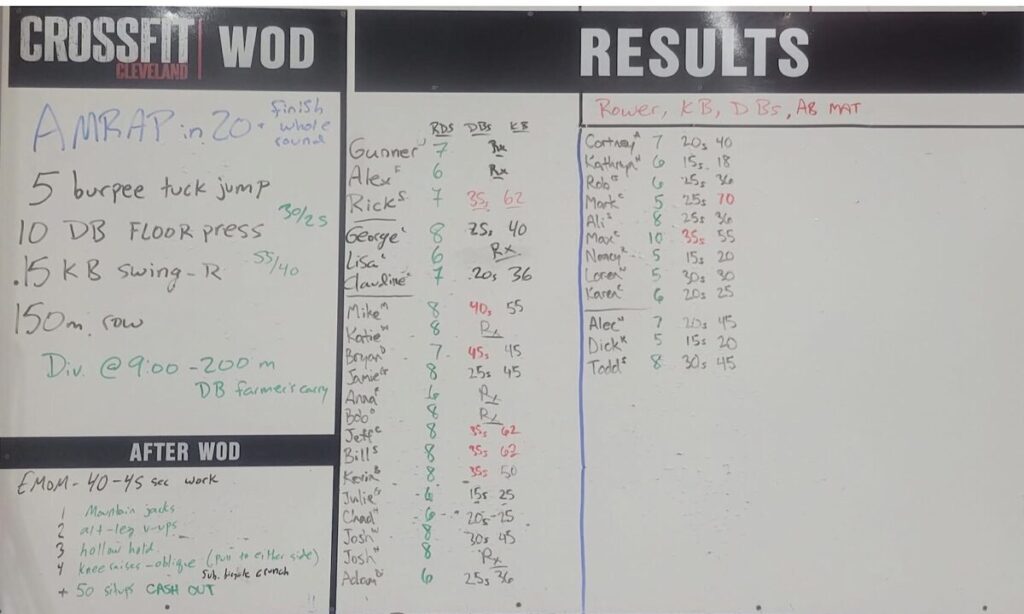 CROSSFIT CLEVELAND WOD
AMRAP in 20 • finish whole round
5 burpee tuck jump
10 DB FLOOR press 30/25
15 KB swing-R 55/40
150m row
Div. @ 9:00 - 200 m
DB farmer's carry
AFTER WOD
EMOM - 40-45 sec work
1 Mountain jacks
2 alt-leg v-ups
3 hollow hold
4 knee raises - oblique (pull to either side)
Sub. bicycle crunch
+ 50 situps CASH OUT
RESULTS
RDS DBs KB
Gunner 7 Rx
Alex 6 Rx
Rick S 7 35s 62
George 8 25s 40
Lisa 6 Rx
Claudine 7 20s 36
Mike M 8 40s 55
Katie 8 Rx
Bryan 7 45s 45
Jamie 8 25s 45
Anna 6 Rx
Bob 8 Rx
Jeff C 8 35s 62
Bill S 8 35s 62
Kevin B 8 35s 50
Julie 6 15s 25
Chad 6 20s 25
Josh 8 30s 45
Josh 8 Rx
Adam 6 25s 36
Rower, KB, DBs, AB MAT
Cortney 7 20s 40
Kathryn 6 15s 18
Rob 6 25s 36
Mark C 5 25s 70
Ali S 8 25s 36
Max C 10 35s 55
Nancy 5 15s 20
Loren 5 30s 30
Karen C 6 20s 25
Alec 7 20s 45
Dick 5 15s 20
Todd S 8 30s 45